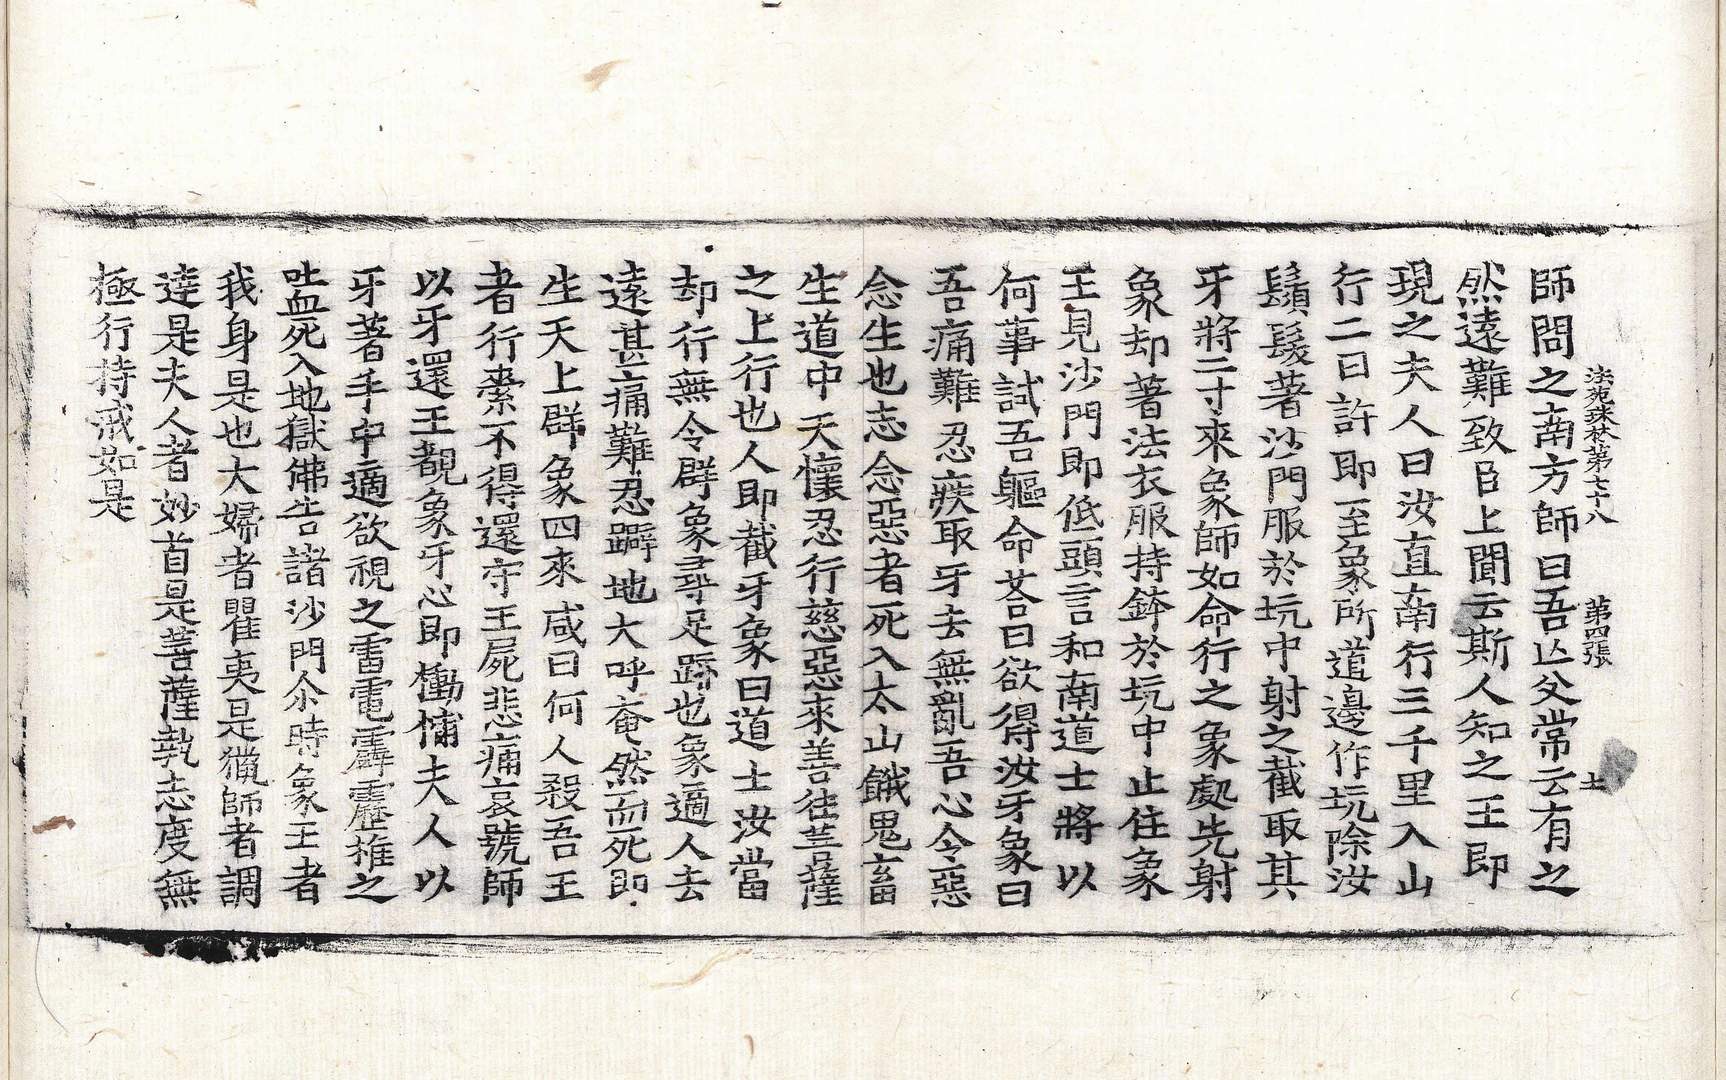 法苑珠林第七十八 第四張 士
師問之南方師曰吾亡父常云有之
然遠難致臣上聞云斯人知之王即
現之夫人曰汝直南行三千里入山
行二日許即至象所道邊作坑除汝
鬚髮著沙門服於坑中射之截取其
牙將二寸來象師如命行之象處先射
象却著法衣服持鉢於坑中止住象
王見沙門即低頭言和南道士將以
何事試吾軀命荅曰欲得汝牙象曰
吾痛難忍疾取牙去無亂吾心令惡
念生也志念惡者死入太山餓鬼畜
生道中夫懷忍行慈惡來善往菩薩
之上行也人即截牙象曰道士汝當
却行無令群象尋足跡也象適人去
遠甚痛難忍躃地大呼奄然而死即
生天上群象四來咸曰何人殺吾王
者行索不得還守王屍悲痛哀號師
以牙還王覩象牙心即慟怖夫人以
牙著手中適欲視之雷電霹靂椎之
吐血死入地獄佛告諸沙門尒時象王者
我身是也大婦者瞿夷是獵師者調
達是夫人者妙首是菩薩執志度無
極行持戒如是